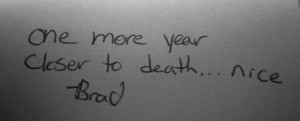 one more year
closer to death... nice
-Brad